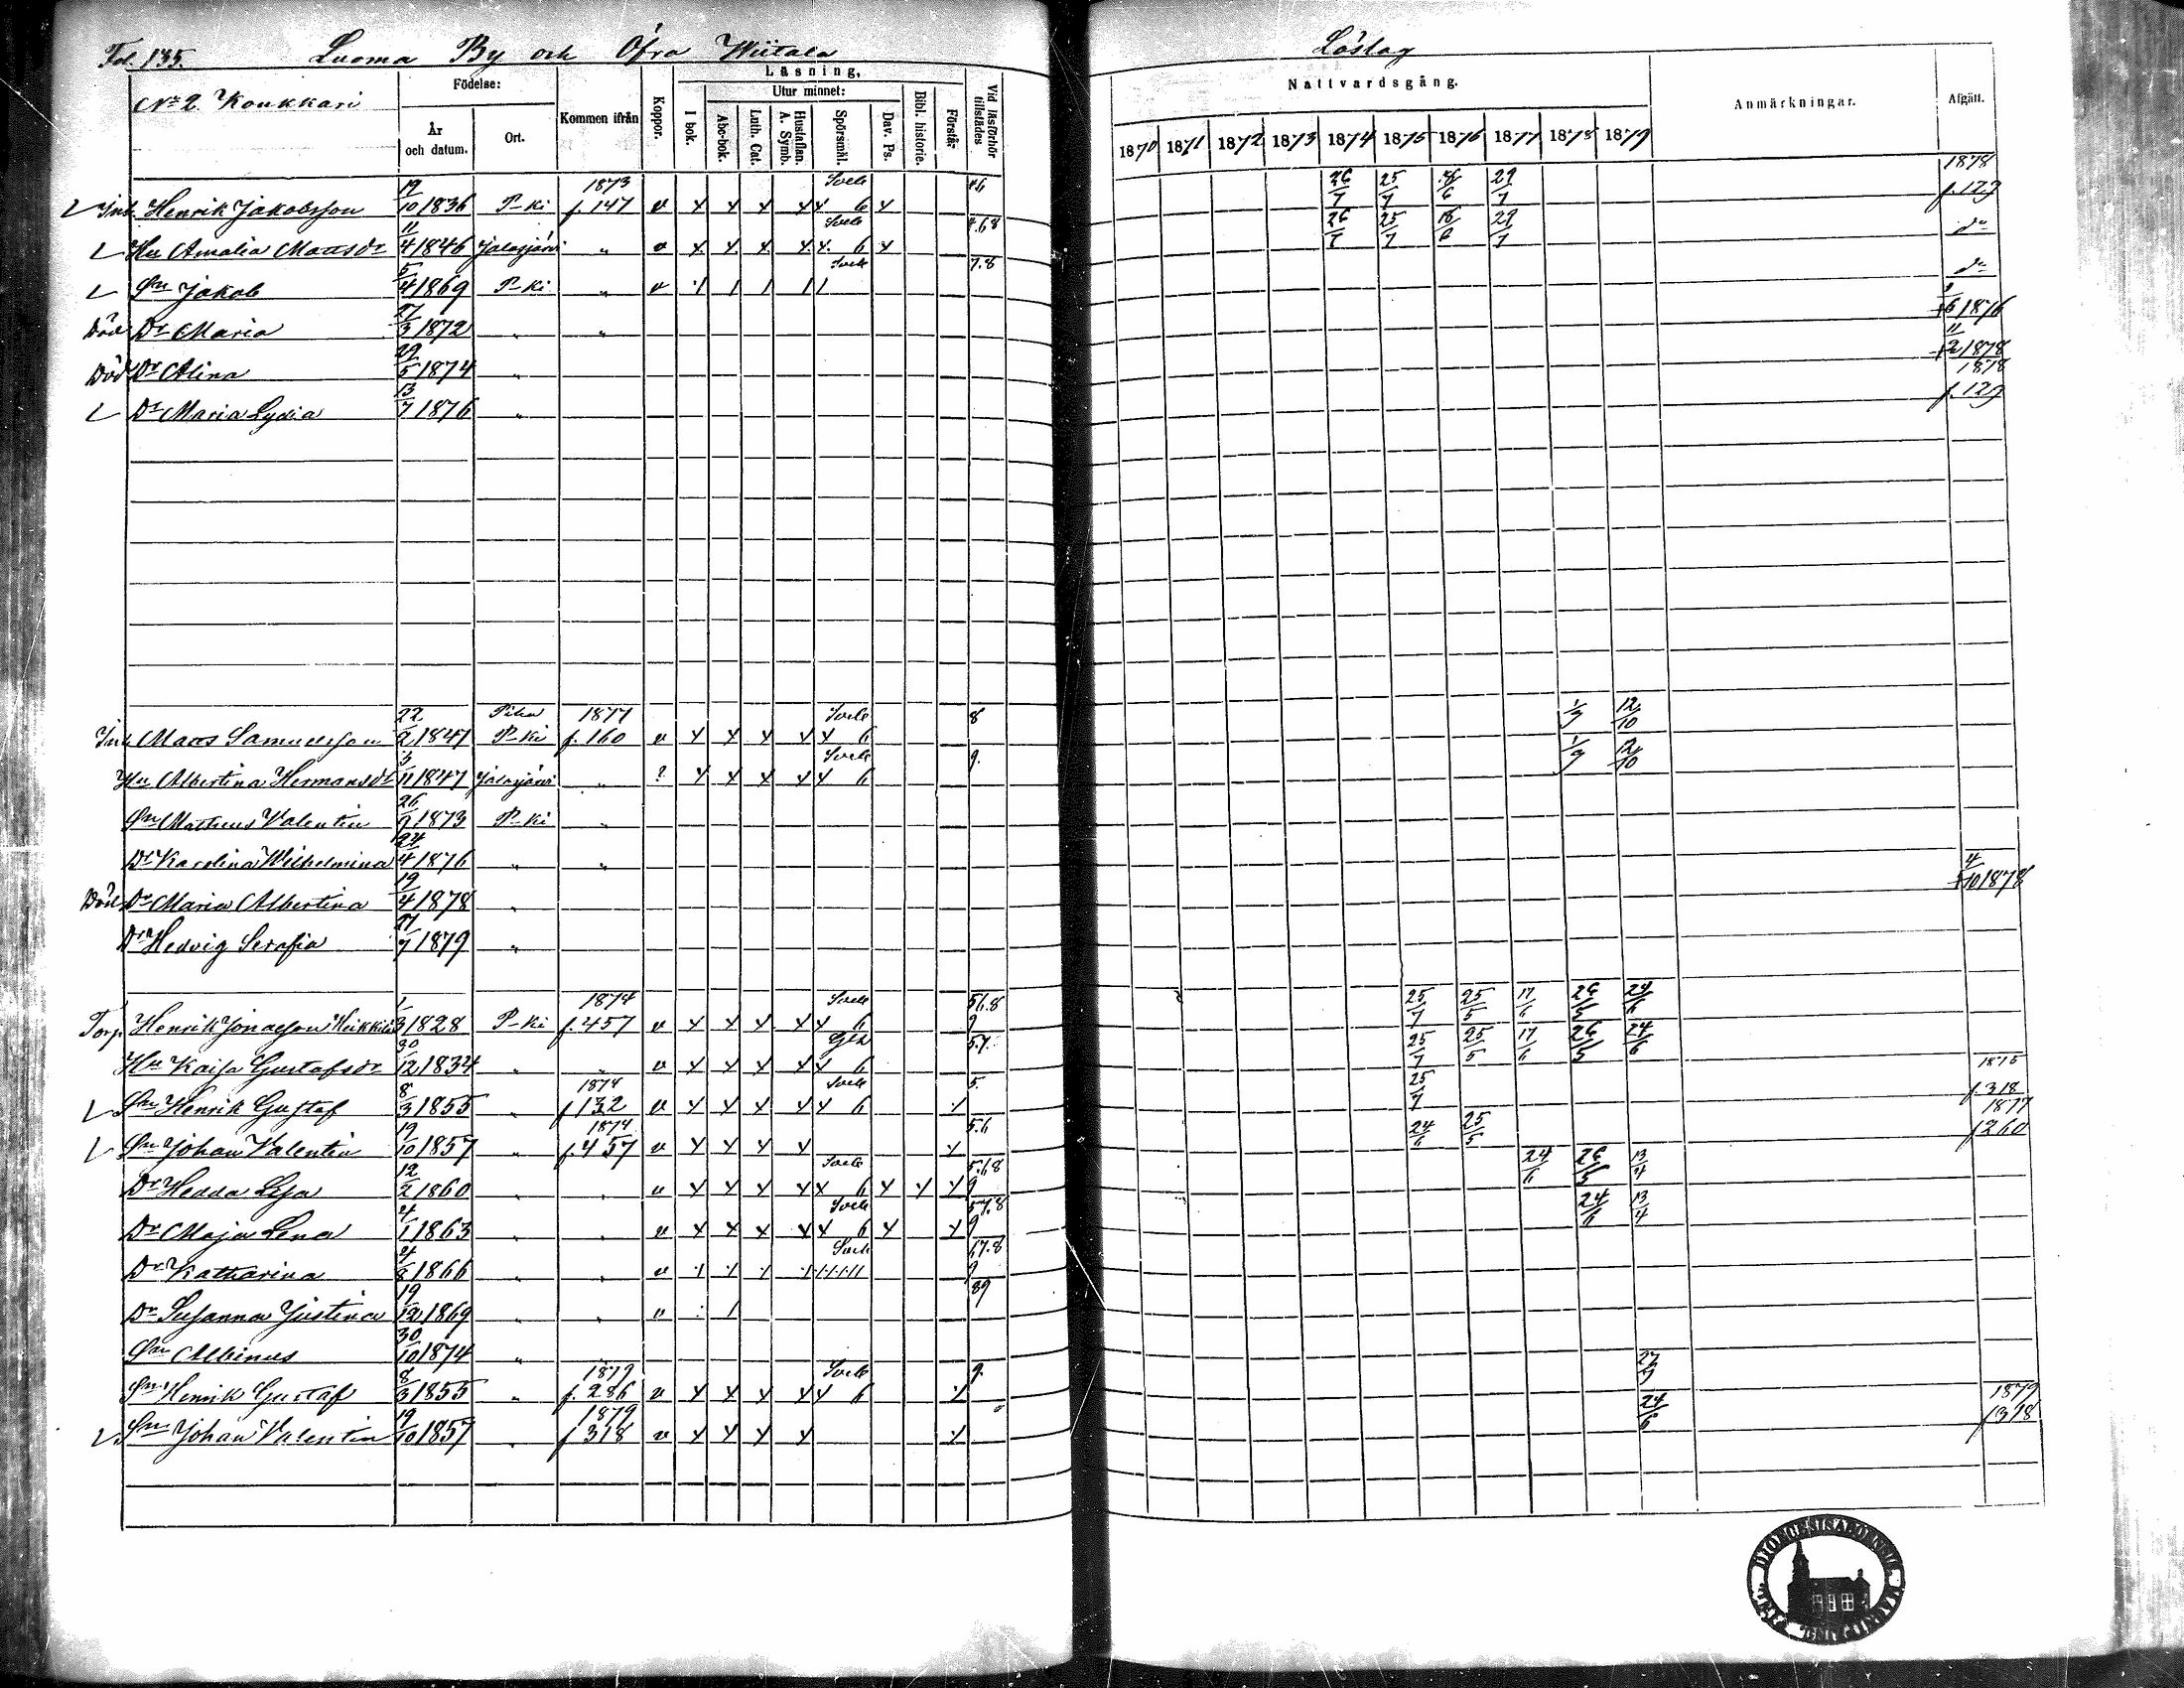 Fol. 135. Luoma By och Öfra Wiitala Löslag
No 2 Koukkari Födelse: År och datum. Ort. Kommen ifrån Koppor. Läsning, I bok. Utur minnet: Abc-bok. Luth. Cat. Hustaflan. A. Symb. Spörsmål. Dav. Ps. Bibl. historie. Förstår Vid läsförhör tillstädes
Nattvardsgång. 1870 1871 1872 1873 1874 1875 1876 1877 1878 1879 Anmärkningar. Afgått.
Inh. Henrik Jakobsson 19/10 1836 P-ki 1873 f. 147 v x x x x x Svele 6 x 26/7 25/7 29/7 1878 f. 129
Hu Amalia Mattsdr 11/4 1846 Jalasjärvi " v x x x x x Svele 6 x 4.6.8 26/7 25/7 18/6 29/7 do
Sn Jakob 5/4 1869 P-ki " v Svele 7.8 do
Död Dr Maria 27/3 1872 " " 1876
Död Dr Alina 29/5 1874 " + 11/2 1878
Dr Maria Lydia 13/7 1876 " 1878 f. 129
Inh. Matts Samuelsson 22/2 1847 P-ki 1877 f. 160 v x x x x x Svele 6 8 1/9 12/10
Hu Albertina Hermansdr 3/11 1847 Jalasjärvi " ? x x x x x Svele 6 9. 1/9 12/10
Sn Mattheus Valentin 26/9 1873 P-ki "
Dr Karolina Wilhelmina 24/4 1876 " "
Död Dr Maria Albertina 19/4 1878 " + 4/10 1878
Dr Hedvig Serafia 27/7 1879 "
Torp. Henrik Jonasson Heikkilä 1/3 1828 P-ki 1874 f. 457 v x x x x x Svele 6 5.6.8 9 25/7 25/5 17/6 26/5 24/6
Hu Kaisa Gustafsdr 30/12 1834 " " v x x x x x 6 5.7. 25/7 25/5 17/6 26/5 24/6
Sn Henrik Gustaf 8/3 1855 " 1874 f 132 v x x x x x Svele 6 5. 25/7 1875 f. 318
Sn Johan Valentin 19/10 1857 " 1874 f. 457 v x x x x x 5.6 24/6 25/5 1877 f 260
Dr Hedda Lisa 12/2 1860 " " v x x x x x Svele 6 x x x 5.6.8 9 24/6 26/5 13/4
Dr Maja Lena 4/1 1863 " " v x x x x x Svele 6 x x 5.7.8 9 24/6 13/4
Dr Katharina 4/8 1866 " " v Svele 6.7.8 9
Dr Susanna Justina 19/12 1869 " " v 89
Sn Albinus 30/10 1874 "
Sn Henrik Gustaf 8/3 1855 " 1879 f. 286 v x x x x x Svele 6 x 9.
Sn Johan Valentin 19/10 1857 " 1879 f 318 v x x x x x 24/6 1879 f 318